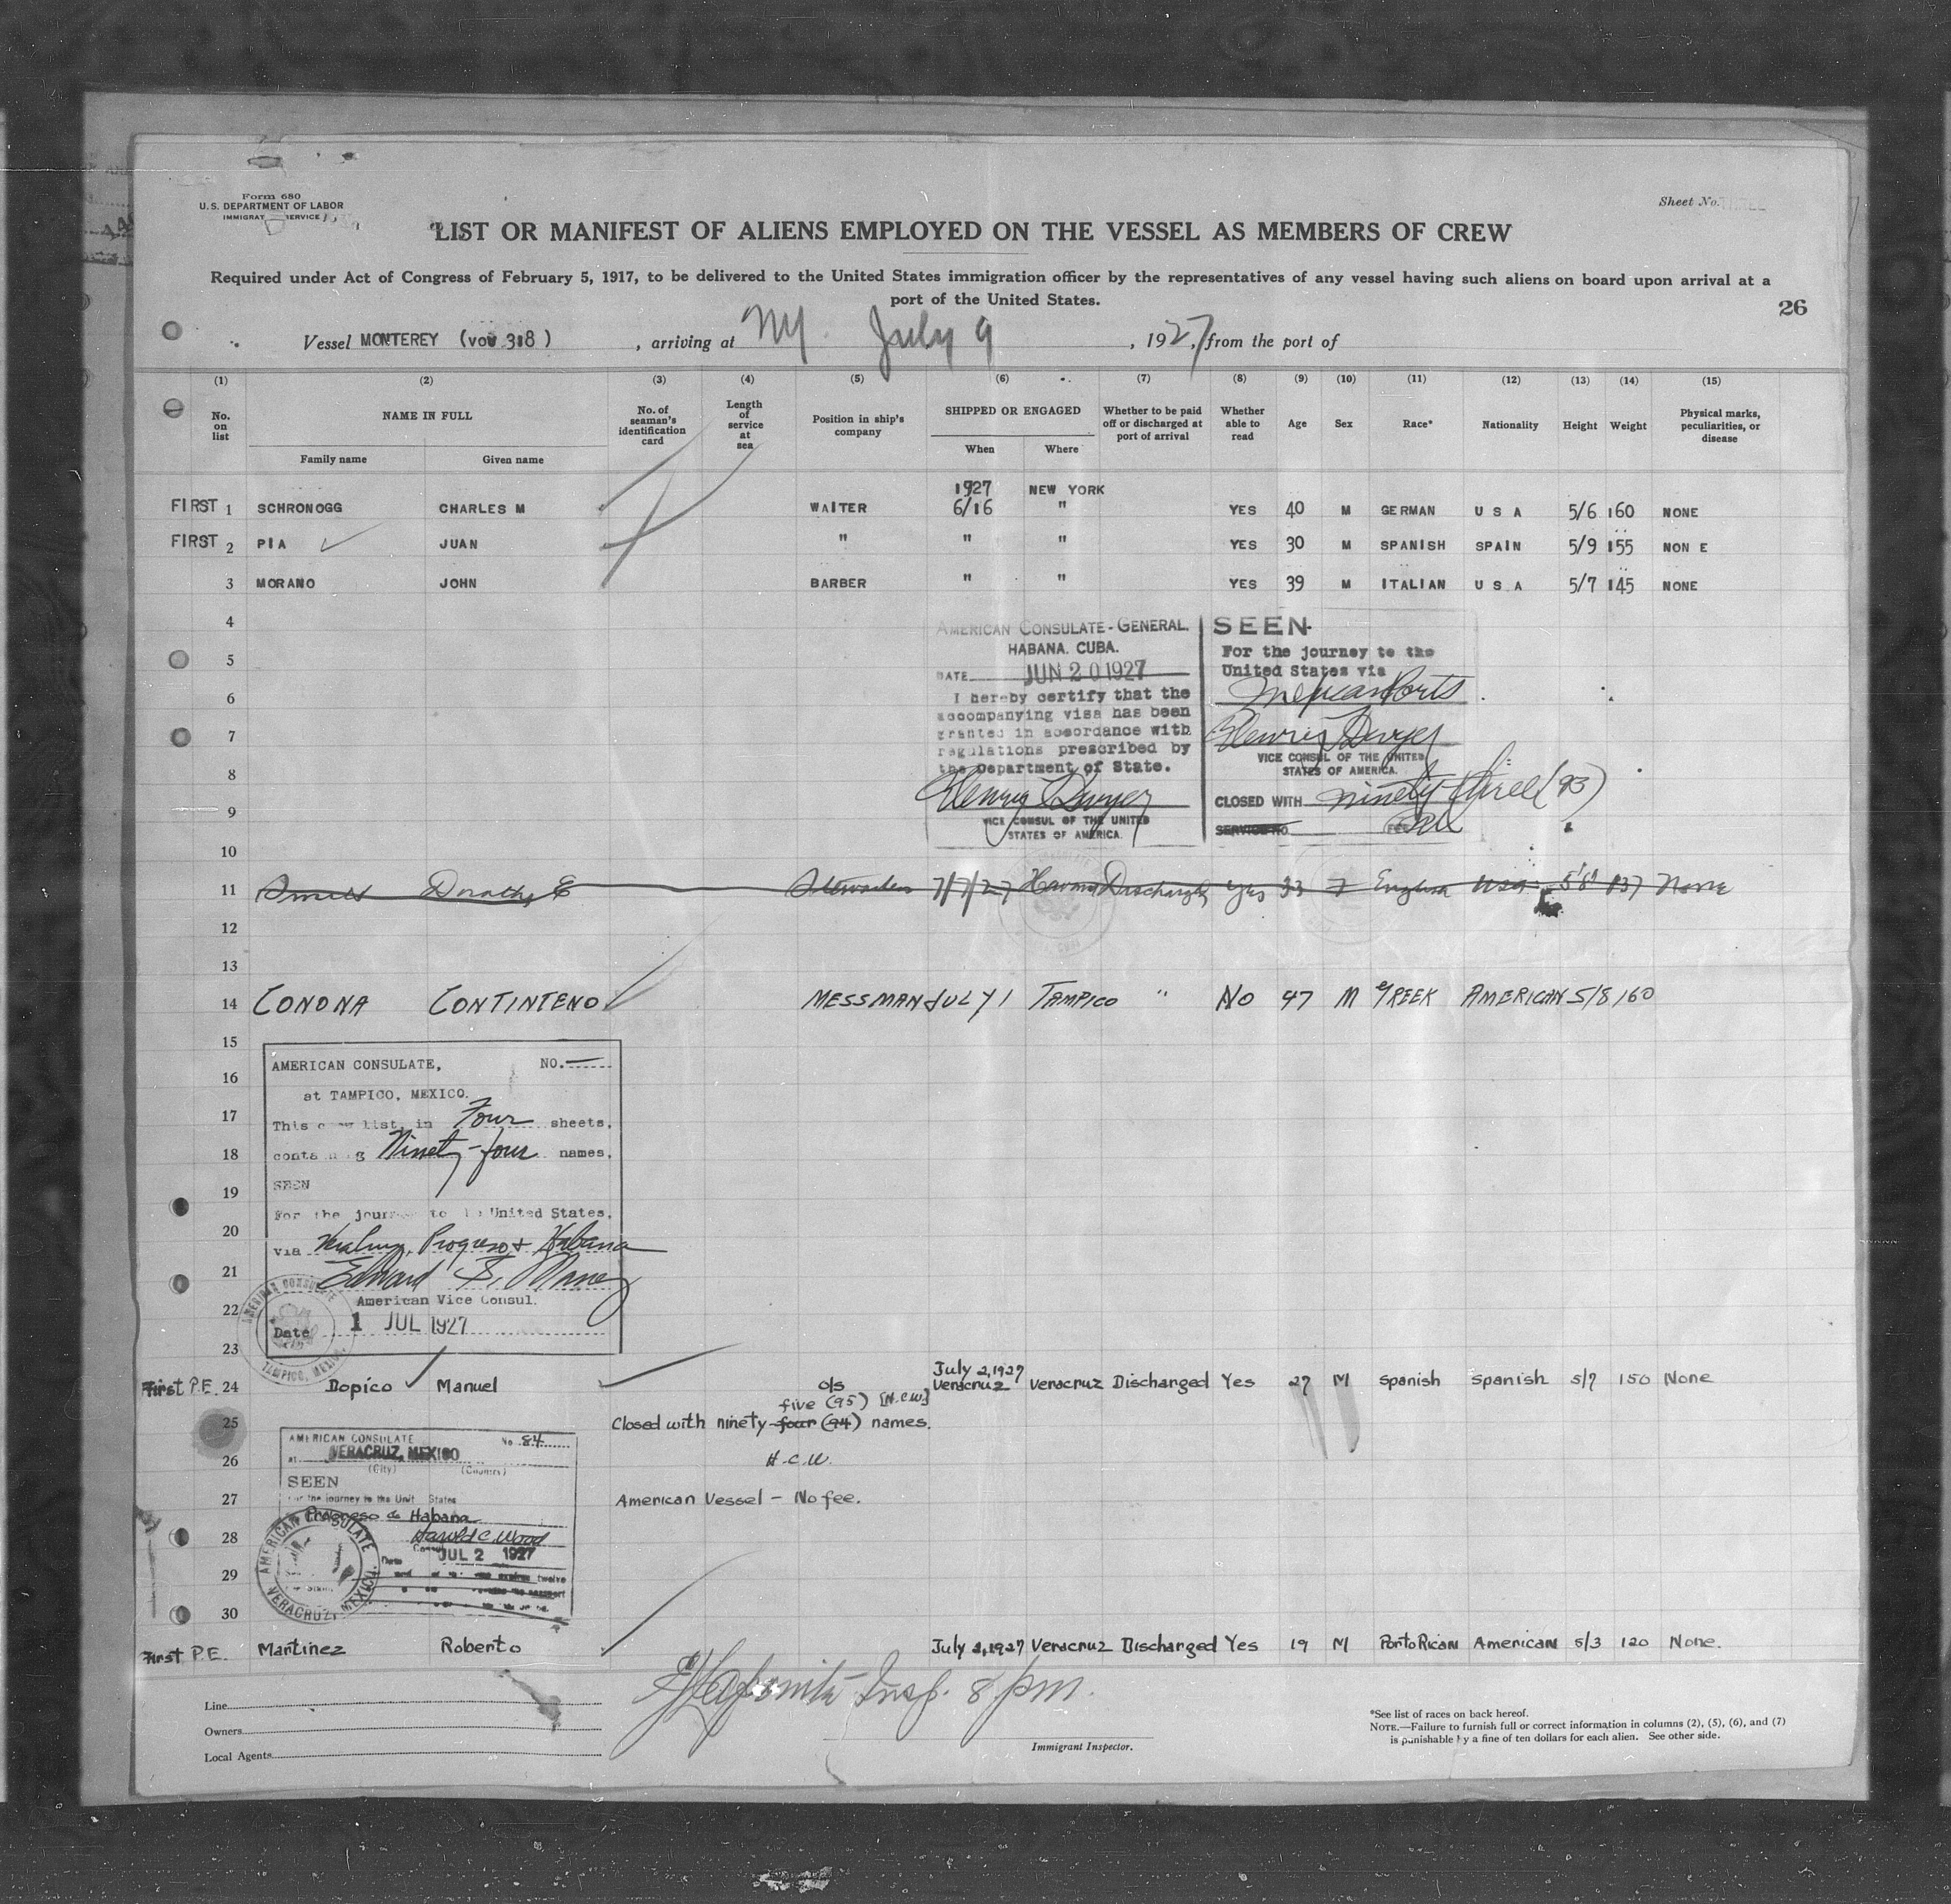 Form 680
U.S. DEPARTMENT OF LABOR
Sheet No.
LIST OR MANIFEST OF ALIENS EMPLOYED ON THE VESSEL AS MEMBERS OF CREW
Required under Act of Congress of February 5, 1917, to be delivered to the United States immigration officer by the representatives of any vessel having such aliens on board upon arrival at a
port of the United States.
26
Vessel MONTEREY (VOY 318), arriving at NY. July 9, 1927, from the port of
(1) (2) (3) (4) (5) (6) (7) (8) (9) (10) (11) (12) (13) (14) (15)
No. on list NAME IN FULL No. of seaman's identification card Length of service at sea Position in ship's company SHIPPED OR ENGAGED Whether to be paid off or discharged at port of arrival Whether able to read Age Sex Race* Nationality Height Weight Physical marks, peculiarities, or disease
Family name Given name When Where
1927 NEW YORK
FIRST 1 SCHRONOGG CHARLES M WAITER 6/16 " YES 40 M GERMAN U S A 5/6 160 NONE
FIRST 2 PIA JUAN " " " YES 30 M SPANISH SPAIN 5/9 155 NON E
3 MORANO JOHN BARBER " " YES 39 M ITALIAN U S A 5/7 145 NONE
4
5
6
7
8
9
10
AMERICAN CONSULATE-GENERAL.
HABANA. CUBA.
DATE JUN 20 1927
I hereby certify that the
accompanying visa has been
granted in accordance with
regulations prescribed by
the Department of State.
Henry Dwyer
VICE CONSUL OF THE UNITED
STATES OF AMERICA.
SEEN
For the journey to the
United States via
Mexican Ports
Henry Dwyer
VICE CONSUL OF THE UNITED
STATES OF AMERICA.
CLOSED WITH ninety three (93)
SERVICE NO
11 Dorothy E Stewardess 7/7/27 Havana Discharged Yes 33 F English USA 5'8" 137 None
12
13
14 CONONA CONTINTENO MESSMAN JULY 1 TAMPICO " NO 47 M GREEK AMERICAN 5/8 160
15
16
17
18
19
20
21
22
23
AMERICAN CONSULATE, NO.
at TAMPICO, MEXICO.
This crew list, in Four sheets,
containing Ninety-four names,
SEEN
For the journey to the United States,
via Veracruz, Progreso & Habana
Edward S.
American Vice Consul.
Date 1 JUL 1927
AMERICAN CONSULATE
TAMPICO, MEXICO.
July 2, 1927
First P.E. 24 Dopico Manuel o/s Veracruz Veracruz Discharged Yes 27 M Spanish Spanish 5/7 150 None
five (95) [H.C.W.]
25 Closed with ninety-four (94) names.
26 H.C.W.
27 American Vessel - No fee.
28
29
30
AMERICAN CONSULATE No. 84
at VERACRUZ, MEXICO
(City) (Country)
SEEN
For the journey to the United States
Progreso & Habana
Harold C. Wood
Consul
Date JUL 2 1927
AMERICAN CONSULATE
VERACRUZ, MEXICO.
First P.E. Martinez Roberto July 2, 1927 Veracruz Discharged Yes 19 M PortoRican American 5/3 120 None.
Insp. 8 pm.
Line
Owners
Local Agents
Immigrant Inspector.
*See list of races on back hereof.
NOTE.—Failure to furnish full or correct information in columns (2), (5), (6), and (7)
is punishable by a fine of ten dollars for each alien. See other side.